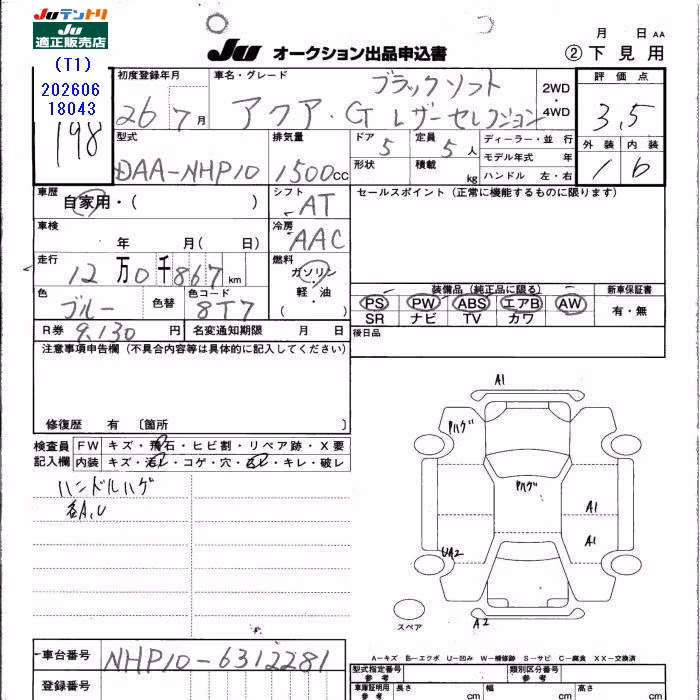 Juテントリ
Ju
適正販売店
(T1)
202606
18043
198
月 日 AA
Ju オークション出品申込書
② 下見用
初度登録年月
26 7月
車名・グレード
ブラックソフト
アクア・G レザーセレクション
2WD・4WD
評価点
3.5
外装 内装
1 6
型式
DAA-NHP10
排気量
1500cc
ドア
5
定員
5人
形状
積載 kg
ディーラー・並行
モデル年式 年
ハンドル 左・右
車歴
自家用・( )
シフト
AT
セールスポイント(正常に機能するものに限ります)
車検
年 月( 日)
冷房
AAC
走行
12万0千867km
燃料
ガソリン
軽・油
( )
色
ブルー
色替
色コード
8T7
装備品(純正品に限る)
PS PW ABS エアB AW
SR ナビ TV カワ
新車保証書
有・無
R券 9,130 円
名変通知期限 月 日
後日品
注意事項申告欄(不具合内容等は具体的に記入してください)
修復歴 有 〔箇所 〕
検査員
記入欄
FW キズ・飛石・ヒビ割・リペア跡・X要
内装 キズ・汚レ・コゲ・穴・スレ・キレ・破レ
ハンドルハゲ
各A,U
A1
Pハゲ
Pハゲ
A1
A1
UA2
A2
スペア
A-キズ B-エクボ U-凹み W-補修跡 S-サビ C-腐食 XX-交換済
車台番号 NHP10-6312281
登録番号
型式指定番号
参考
類別区分番号
参考
車庫証明用
参考
長さ cm
幅 cm
高さ cm